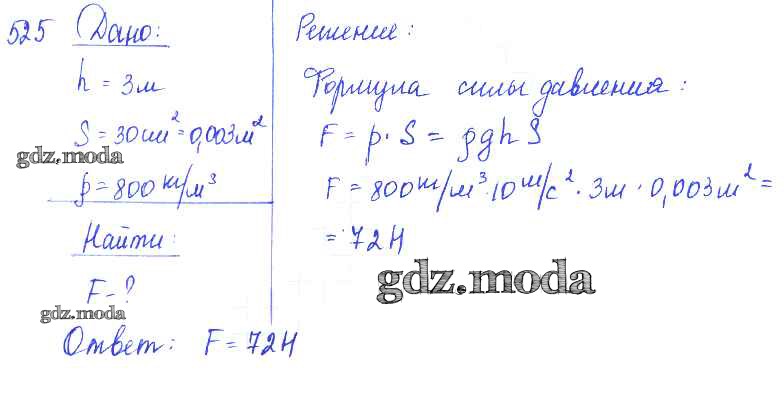 525 Дано:
h = 3м
S = 30см² = 0,003м²
gdz.moda
ρ = 800кг/м³
Найти:
F - ?
gdz.moda
Решение:
Формула силы давления:
F = p · S = ρghS
F = 800кг/м³ · 10м/с² · 3м · 0,003м² =
= 72Н
gdz.moda
Ответ: F = 72Н